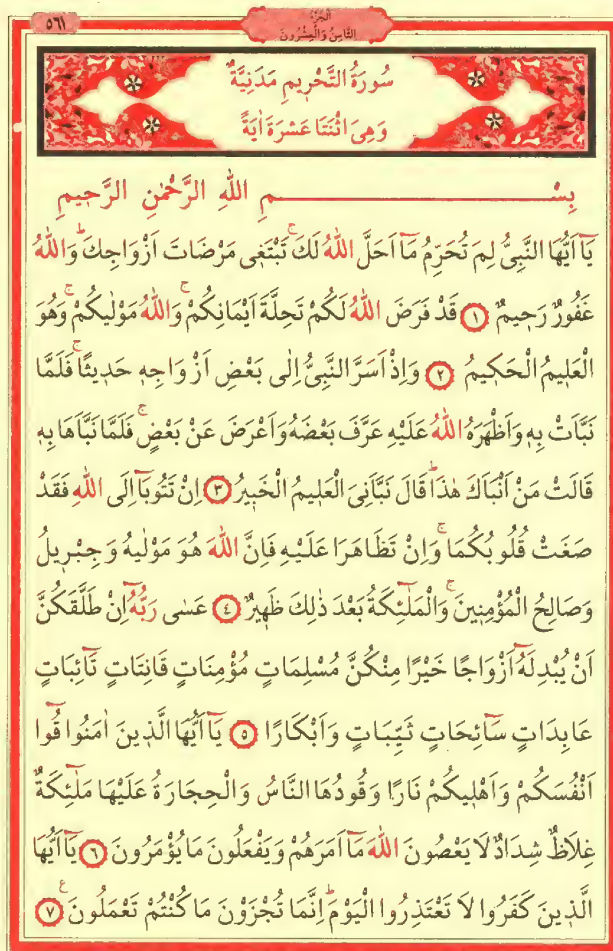 ٥٦١
اَلْجُزْءُ
الثَّامِنُ وَالْعِشْرُونَ
سُورَةُ التَّحْر۪يمِ مَدَنِيَّةٌ
وَهِىَ اثْنَتَا عَشْرَةَ اٰيَةً
بِسْمِ اللهِ الرَّحْمٰنِ الرَّح۪يمِ
يَٓا اَيُّهَا النَّبِىُّ لِمَ تُحَرِّمُ مَٓا اَحَلَّ اللهُ لَكَۚ تَبْتَغ۪ى مَرْضَاتَ اَزْوَاجِكَۜ وَاللهُ
غَفُورٌ رَح۪يمٌ ﴿١﴾ قَدْ فَرَضَ اللهُ لَكُمْ تَحِلَّةَ اَيْمَانِكُمْۚ وَاللهُ مَوْلٰيكُمْۚ وَهُوَ
الْعَل۪يمُ الْحَك۪يمُ ﴿٢﴾ وَاِذْ اَسَرَّ النَّبِىُّ اِلٰى بَعْضِ اَزْوَاجِه۪ حَد۪يثًاۚ فَلَمَّا
نَبَّاَتْ بِه۪ وَاَظْهَرَهُ اللهُ عَلَيْهِ عَرَّفَ بَعْضَهُ وَاَعْرَضَ عَنْ بَعْضٍۚ فَلَمَّا نَبَّاَهَا بِه۪
قَالَتْ مَنْ اَنْبَاَكَ هٰذَاۜ قَالَ نَبَّاَنِىَ الْعَل۪يمُ الْخَب۪يرُ ﴿٣﴾ اِنْ تَتُوبَٓا اِلَى اللهِ فَقَدْ
صَغَتْ قُلُوبُكُمَاۚ وَاِنْ تَظَاهَرَا عَلَيْهِ فَاِنَّ اللهَ هُوَ مَوْلٰيهُ وَجِبْر۪يلُ
وَصَالِحُ الْمُؤْمِن۪ينَۚ وَالْمَلٰٓئِكَةُ بَعْدَ ذٰلِكَ ظَه۪يرٌ ﴿٤﴾ عَسٰى رَبُّهُٓ اِنْ طَلَّقَكُنَّ
اَنْ يُبْدِلَهُٓ اَزْوَاجًا خَيْرًا مِنْكُنَّ مُسْلِمَاتٍ مُؤْمِنَاتٍ قَانِتَاتٍ تَٓائِبَاتٍ
عَابِدَاتٍ سَٓائِحَاتٍ ثَيِّبَاتٍ وَاَبْكَارًا ﴿٥﴾ يَٓا اَيُّهَا الَّذ۪ينَ اٰمَنُوا قُٓوا
اَنْفُسَكُمْ وَاَهْل۪يكُمْ نَارًا وَقُودُهَا النَّاسُ وَالْحِجَارَةُ عَلَيْهَا مَلٰٓئِكَةٌ
غِلَاظٌ شِدَادٌ لَا يَعْصُونَ اللهَ مَٓا اَمَرَهُمْ وَيَفْعَلُونَ مَا يُؤْمَرُونَ ﴿٦﴾ يَٓا اَيُّهَا
الَّذ۪ينَ كَفَرُوا لَا تَعْتَذِرُوا الْيَوْمَۜ اِنَّمَا تُجْزَوْنَ مَا كُنْتُمْ تَعْمَلُونَ ع ﴿٧﴾